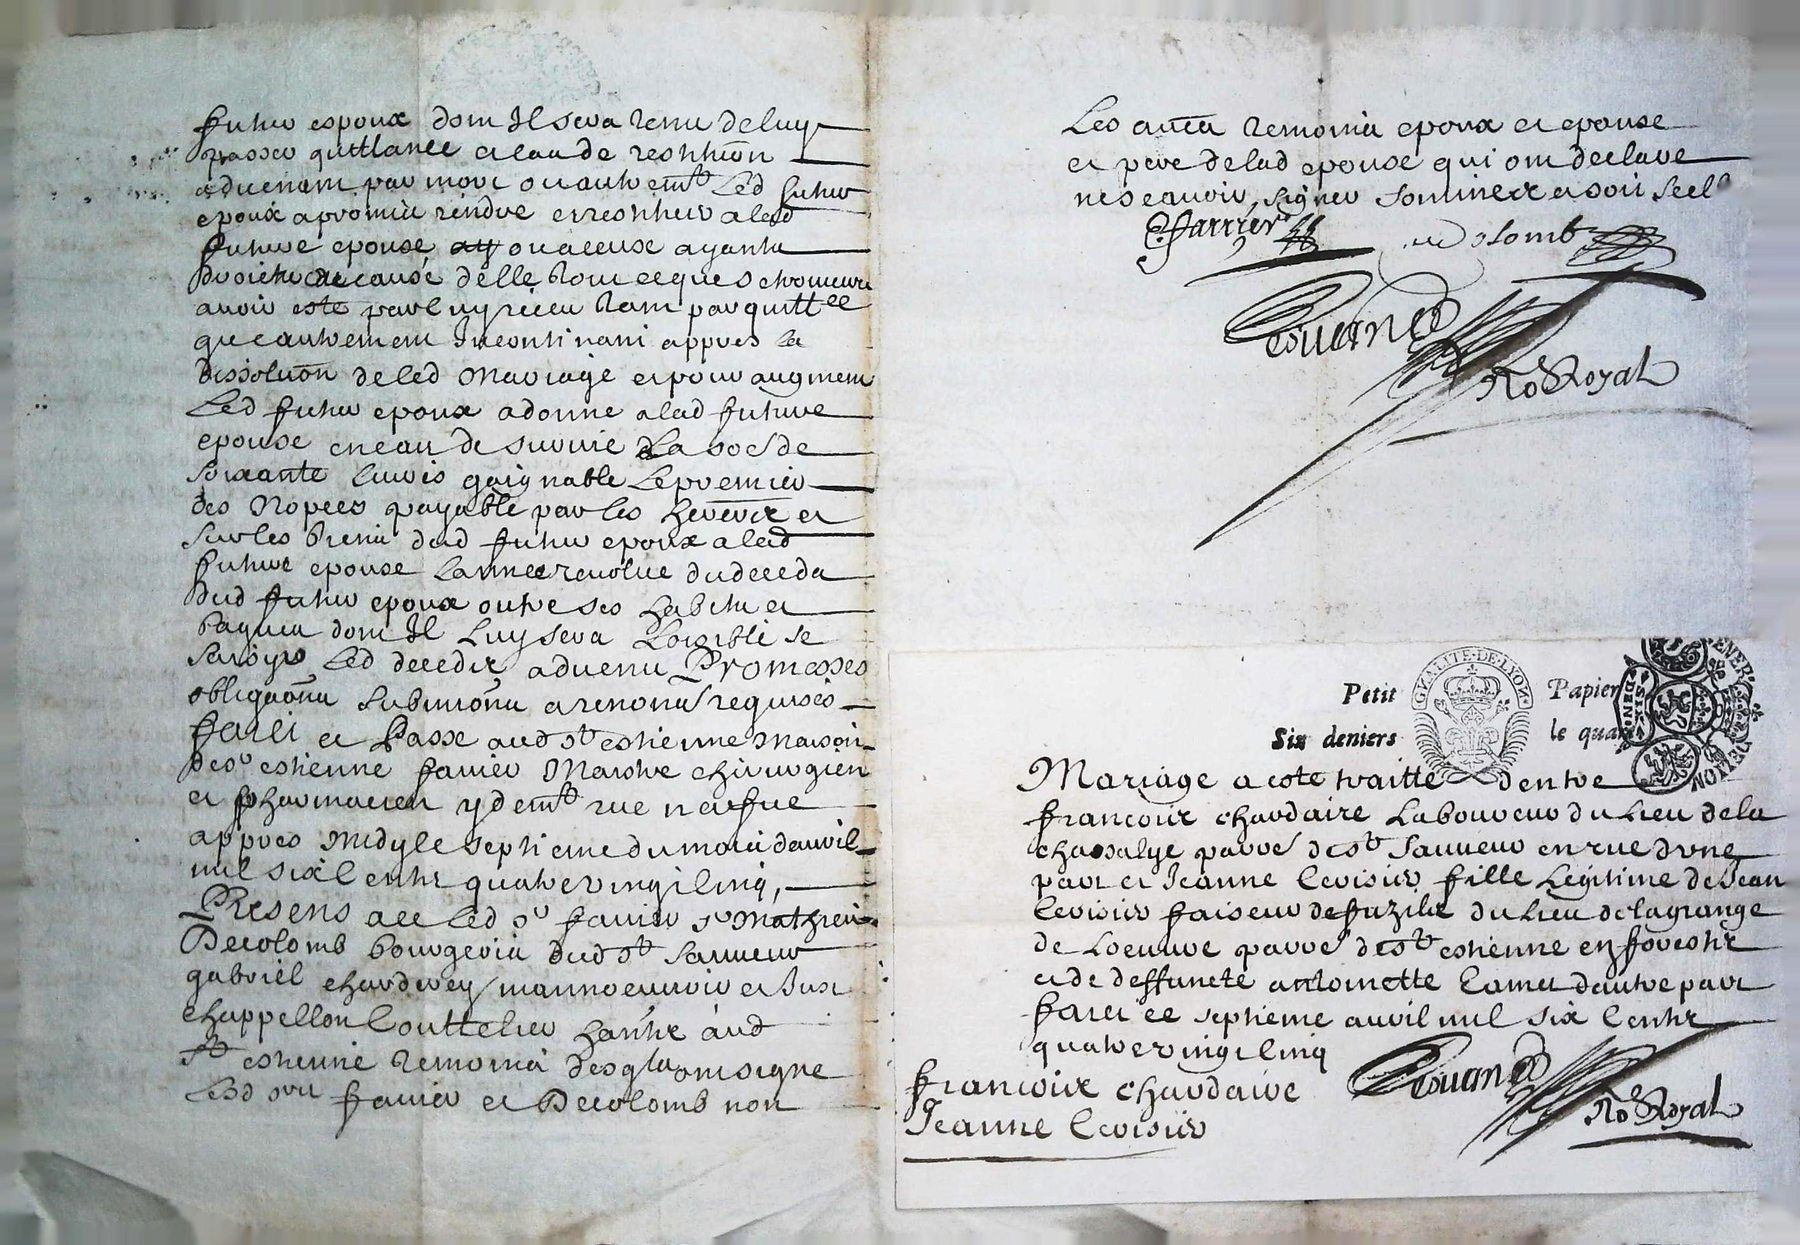 futur espoux dont Il sera tenu de luy
passer quittance et cas de restition
advenant par mort ou autremt led futur
epoux a promis rendre et restituer a lad
future epouse ou a ceux ayants
droicts de cause delle tout ce que se trouvera
avoir esté par luy receu tant par quittce
que autrement Incontinant appres la
dissolution de led Mariage et pour augment
Led futur epoux a donne a lad future
epouse en cas de survie La so^e de
soixante livres gaignable le premier
des Nopces payable par les heretiers et
sur les biens dud futur epoux a lad
future epouse Lannee revolue du deceds
dud futur epoux outre ses habits et
bagues dont Il Luy sera Loisible se
saisir Led deceds advenu Promesses
obligaons submions a renonns requises
faict et Passe aud st estienne Maison
de sr estienne farrier Maistre chirurgien
et pharmacien yd emt rue neufve
appres Midy le septieme du mois davril
mil six Cents quatre vingt Cinq,
PResens avec led sr farrier sr Mathieu
Decolomb bourgeois dud st sauveur
gabriel chardwey mannoeuvrier et Just
chappellon Couttelier habits aud
st estienne temoins desquls ont signe
Lesd srs farrier et Decolomb non
Les autres temoins epoux et epouse
et pere de lad epouse qui ont declare
ne scavoir signer sont inerx et soit scell
farrier decolomb
Rouand
No Royal
Petit Papier
Six deniers le quar
GNALITE·DE·LYON
Mariage a este traitte dentre
francois chardaire Laboureur du Lieu de la
chassalye parre de st sauveur en rue dune
part et Jeanne Croisier fille Legitime de Jean
Croisier faiseur de fuzils du Lieu de la grange
de Loeuvre parre de st estienne en forestz
et de deffuncte anthoinette Camer dautre part
faict ce septieme avril mil six Cents
quatre vingt Cinq
francoise chardaire
Jeanne Croisier
Rouand
No Royal